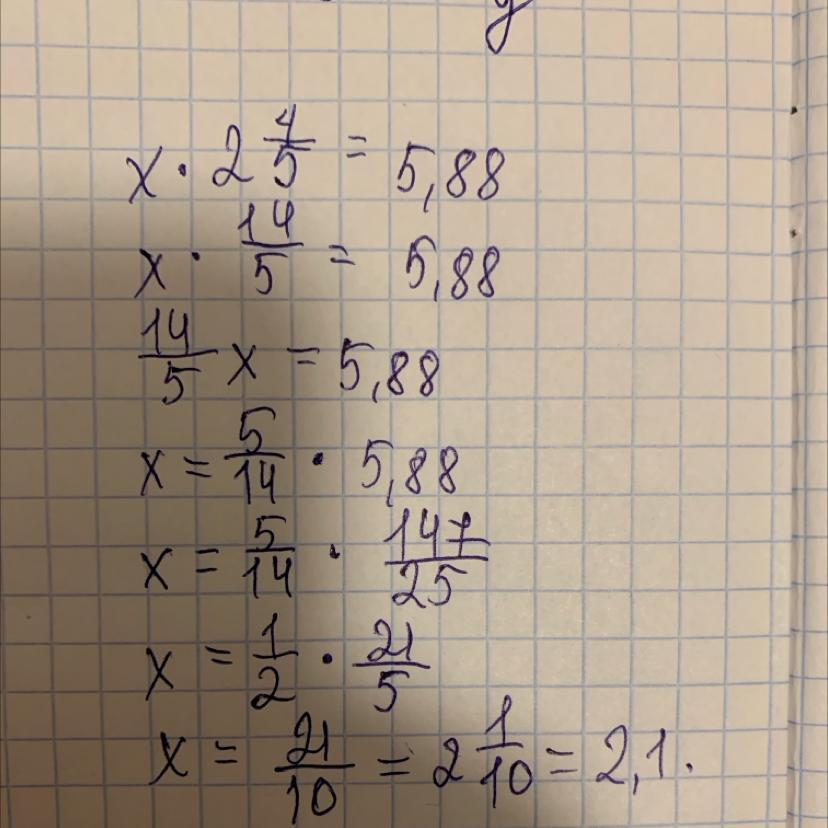 x · 2 4/5 = 5,88
x · 14/5 = 5,88
14/5 x = 5,88
x = 5/14 · 5,88
x = 5/14 · 147/25
x = 1/2 · 21/5
x = 21/10 = 2 1/10 = 2,1.